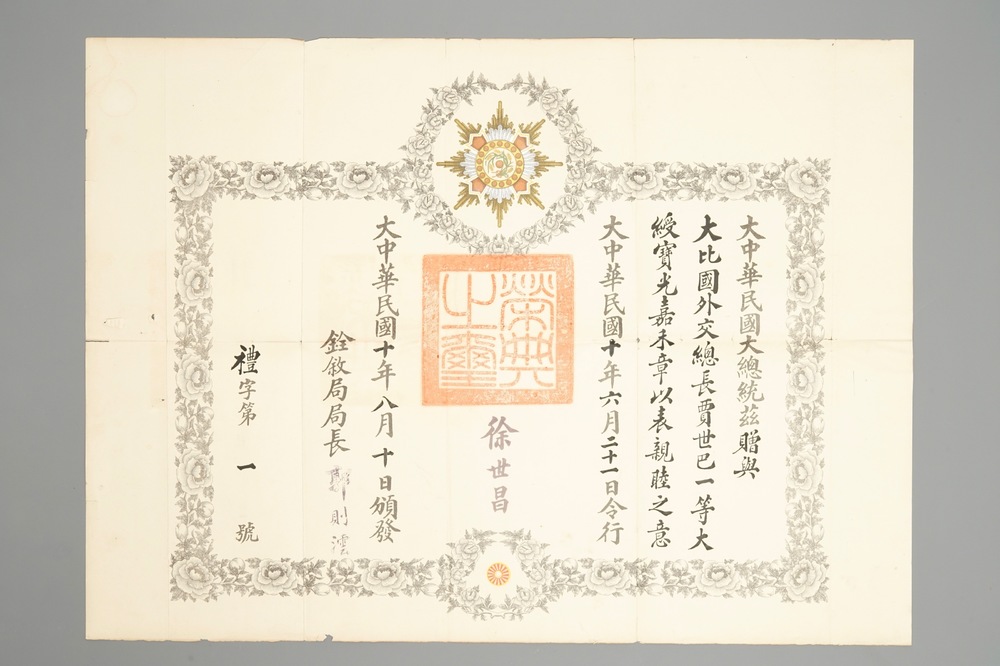 大中華民國大總統茲贈與
大比國外交總長賈世巴一等大
綬寶光嘉禾章以表親睦之意
大中華民國十年六月二十一日令行
榮典之璽
徐世昌
大中華民國十年八月十日頒發
銓敘局局長
禮字第一號